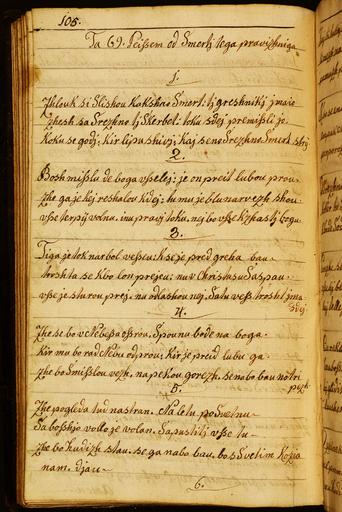 108.
Ta 69. Peissem od Smerti tega pravizhniga
1.
Zhlouk si slishou kakshno Smert: tj greshnikij jmaio
zhesh sa Srezhno tj skerbet: toku sdej premissli je
Koku se godj; Kir lipu shivj; Kaj se no Srezhno Smert stry
2.
Bosh missle de boga vsselej: je on preit lubou prou
zhe ga je kej reshalou kdej: tu mu je blu narvezh shou
vsse terpij volna. inu pravj toku. nej bo vsse kkastj bogu.
3.
Tiga je tok narbol vesseu: k se je pred greha bau
troshta se k bo lon prejeu: nu v Christusu Saspau
vsse je sturou prej. nu odkashou nej. Satu vess trosht jma
sdej
4.
Zhe se bo v Nebessa osrou. Spounu bode na boga.
Kir mu bo rad Nebu odprou; Kir je preid lubu ga
zhe bo Smisslou vezh. na pekou gorezh. se nabo bau notri
pezh
5.
Zhe pogleda tud nastran. Na letu posvetnu
Sa boshjo volo je volan. Sapustitj vsse tu
zhe bo hudizh stau. se ga nabo bau. bo s Svetim
nam. djau
6.